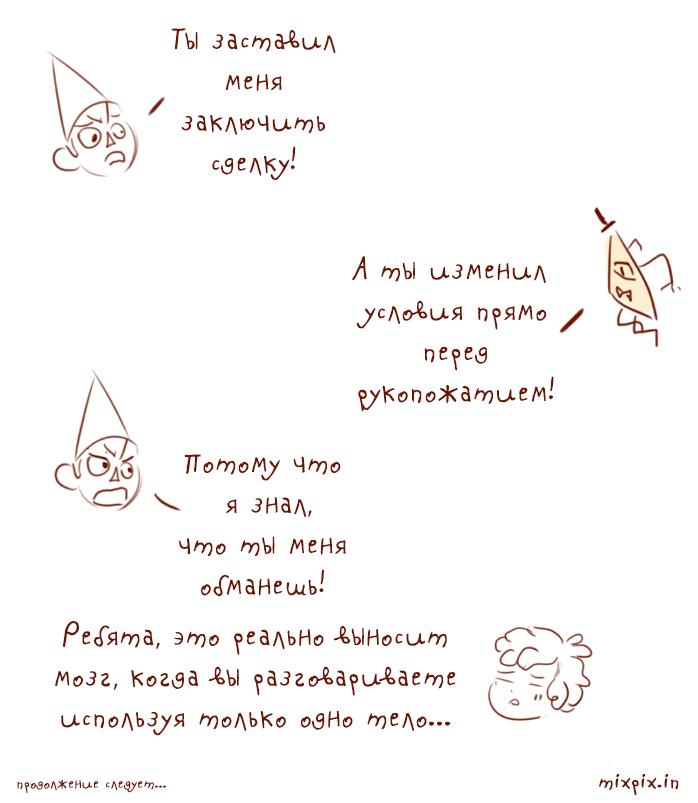 Ты заставил
меня
заключить
сделку!
А ты изменил
условия прямо
перед
рукопожатием!
Потому что
я знал,
что ты меня
обманешь!
Ребята, это реально выносит
мозг, когда вы разговариваете
используя только одно тело...
продолжение следует...
mixpix.in